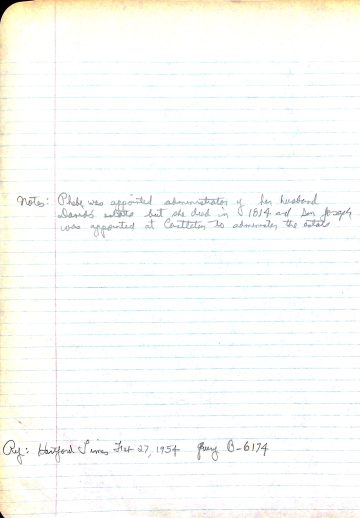 Notes: Phebe was appointed administrator of her husband
David's estate but she died in 1814 and son Joseph
was appointed at Castleton to administer the estate
Ref: Hartford Times Feb 27, 1954 Query B-6174